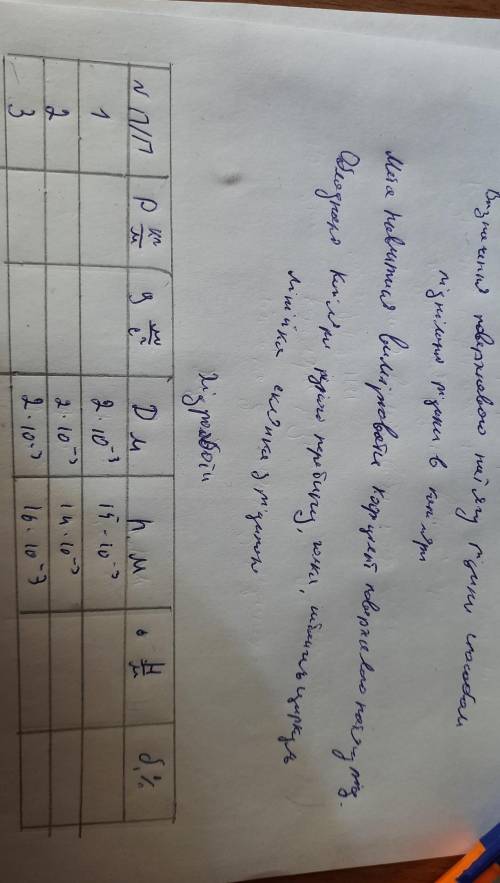 Визначення поверхневого натягу рідини способом
підняття рідини в капілярі
Мета навчитися вимірювати коефіцієнт поверхневого натягу рід.
Обладнання капіляри різного перерізу, голка, штангенциркуль
лінійка склянка з рідиною
Хід роботи
N П/П ρ кг/м g м/с² D м h, м σ Н/м δ, %
1 2·10⁻³ 15·10⁻³
2 2·10⁻³ 14·10⁻³
3 2·10⁻³ 16·10⁻³